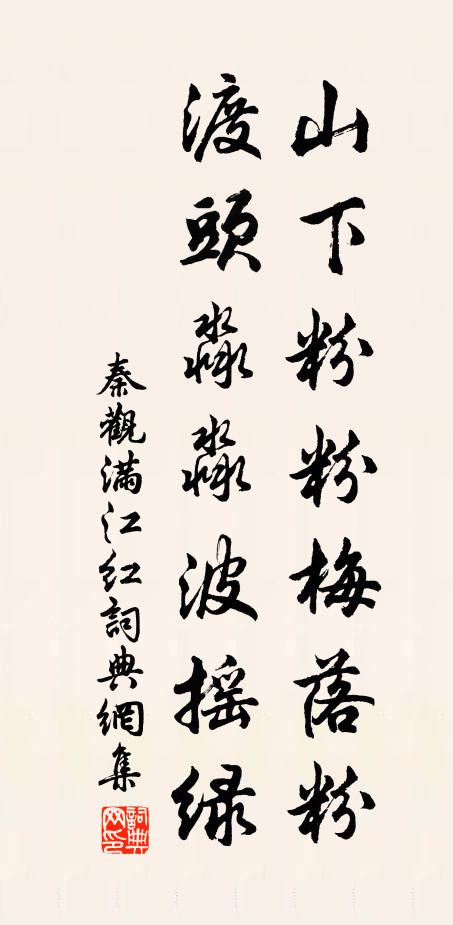 山下粉粉梅落粉
渡頭淼淼波摇绿
秦觀滿江紅詞典網集
詞典网印